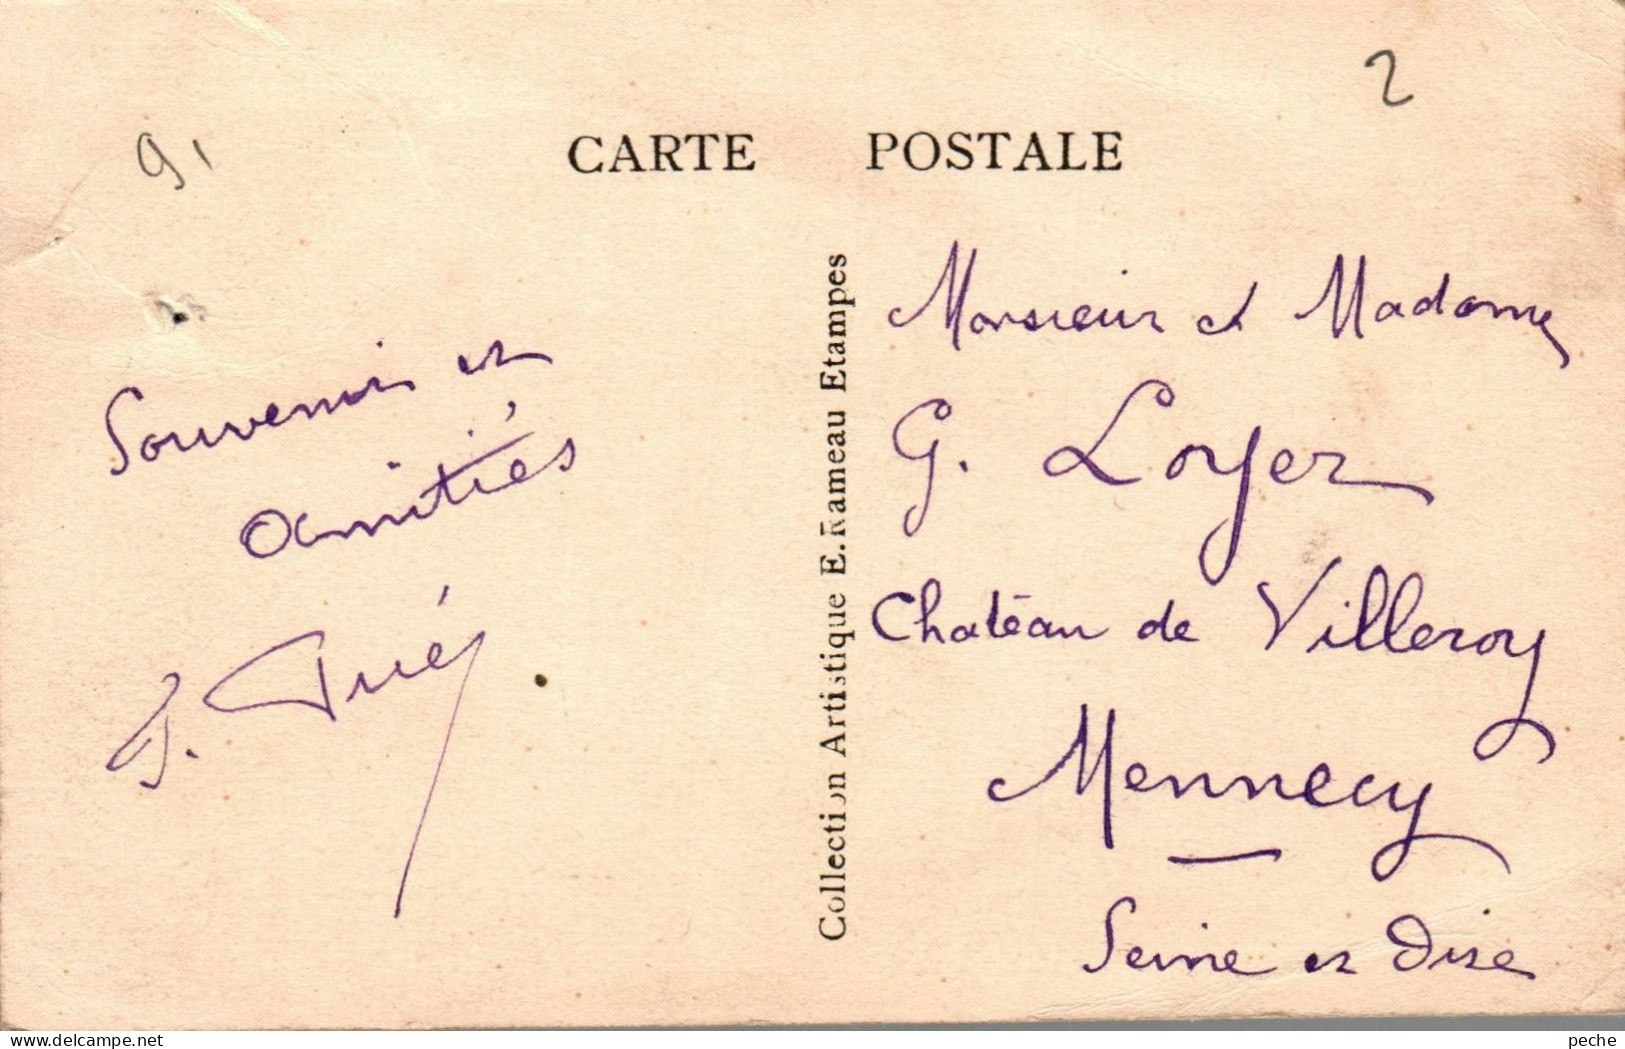 91
2
CARTE POSTALE
Souvenir et
amitiés
Collection Artistique E. Rameau Etampes
Monsieur et Madame
G. Loyer
Château de Villeroy
Mennecy
Seine et Oise
www.delcampe.net
peche